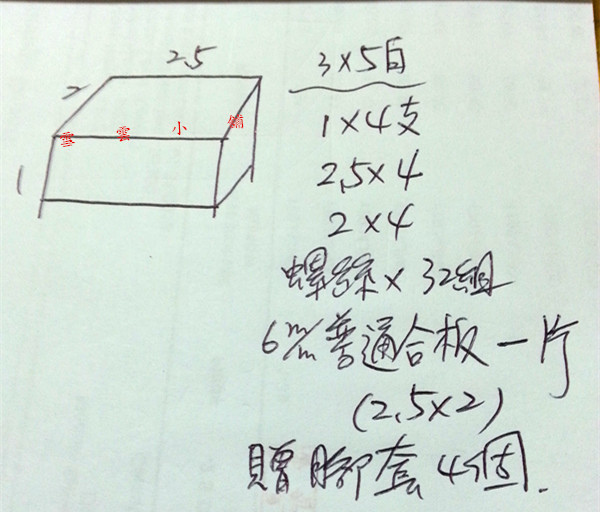 2.5
2
雲小鋪
1
3×5白
1×4支
2.5×4
2×4
螺絲×32組
6m/m普通合板一片
(2.5×2)
贈腳套4個.